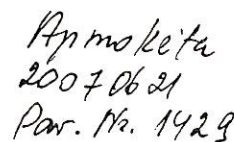 Apmokėta
2007 06 21
Pav. Nr. 1429